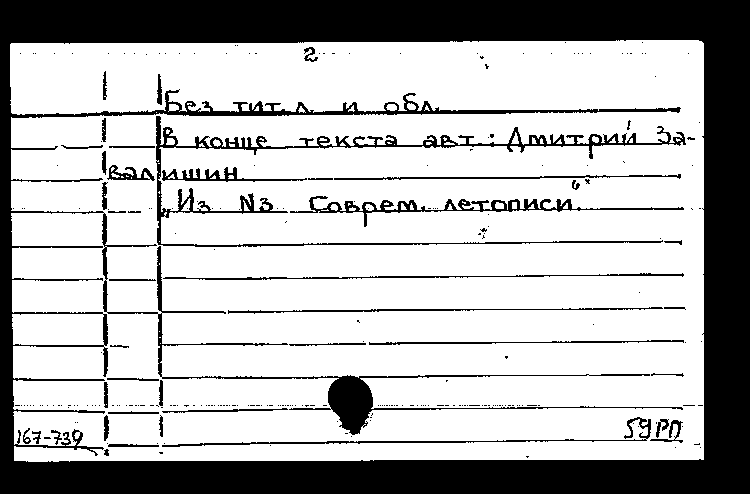 2
Без тит. л. и обл.
В конце текста авт.: Дмитрий За-
валишин.
„Из N3 Соврем. летописи."
167-739
59РП